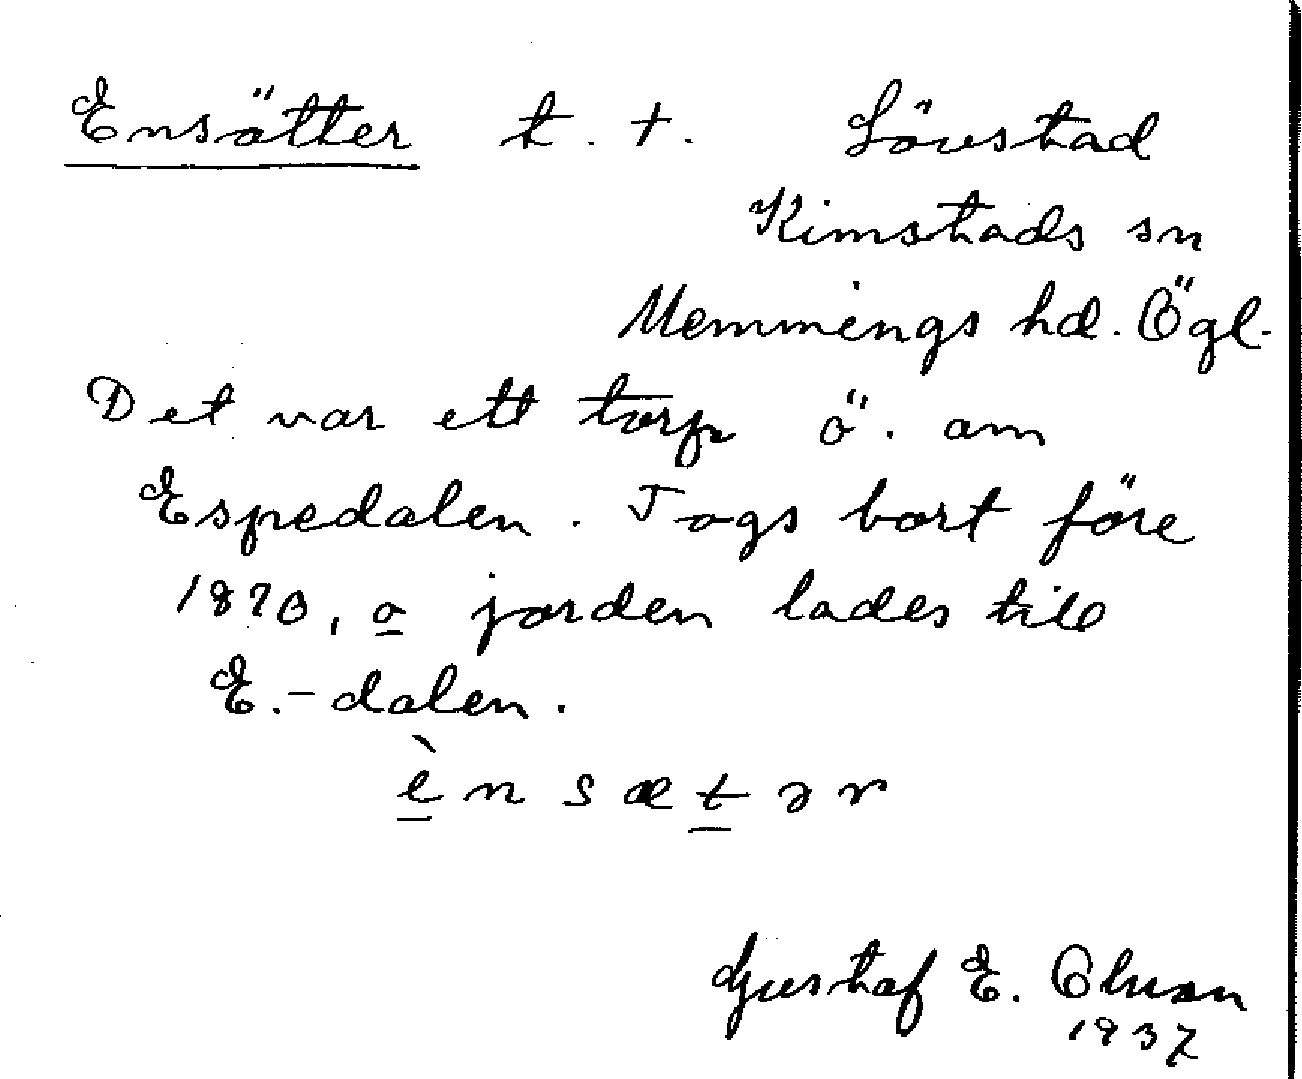 Ensätter t. †. Lövstad
Kimstads sn
Memmings hd. Ögl.
Det var ett torp ö. om
Espedalen. Togs bort före
1870, o jorden lades till
E.-dalen.
è n s æ t ə r
Gustaf E. Olsson
1937